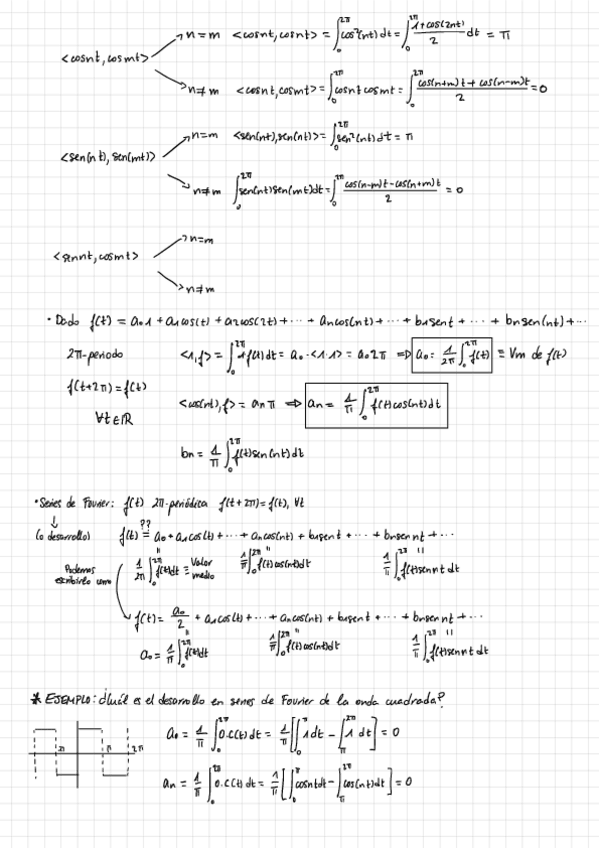 n=m <cosnt,cosnt> = ∫₀^2π cos²(nt)dt = ∫₀^2π (1+cos(2nt))/2 dt = π
<cosnt, cosmt>
n≠m <cosnt,cosmt> = ∫₀^2π cosnt cosmt = ∫₀^2π (cos(n+m)t + cos(n-m)t)/2 = 0
n=m <sen(nt),sen(nt)> = ∫₀^2π sen²(nt)dt = π
<sen(nt), sen(mt)>
n≠m ∫₀^2π sen(nt)sen(mt)dt = ∫₀^2π (cos(n-m)t - cos(n+m)t)/2 = 0
n=m
<sennt, cosmt>
n≠m
· Dado f(t) = a₀1 + a₁cos(t) + a₂cos(2t) + ··· + aₙcos(nt) + ··· + b₁sent + ··· + bₙsen(nt) + ···
2π-periodo <1,f> = ∫₀^2π 1f(t)dt = a₀·<1·1> = a₀2π ⇒ a₀ = 1/2π ∫₀^2π f(t) ≡ Vm de f(t)
f(t+2π) = f(t)
<cos(nt),f> = aₙπ ⇒ aₙ = 1/π ∫₀^2π f(t)cos(nt)dt
∀t∈ℝ
bₙ = 1/π ∫₀^2π f(t)sen(nt)dt
· Series de Fourier: f(t) 2π-periódica f(t+2π)=f(t), ∀t
↓ ??
(o desarrollo) f(t) = a₀ + a₁cos(t) + ··· + aₙcos(nt) + b₁sent + ··· + bₙsen nt + ···
Podemos escribirlo como
1/2π ∫₀^2π f(t)dt ≡ Valor medio 1/π ∫₀^2π f(t)cos(nt)dt 1/π ∫₀^2π f(t)sennt dt
f(t) = a₀/2 + a₁cos(t) + ··· + aₙcos(nt) + b₁sent + ··· + bₙsen nt + ···
a₀ = 1/π ∫₀^2π f(t)dt 1/π ∫₀^2π f(t)cos(nt)dt 1/π ∫₀^2π f(t)sennt dt
* EJEMPLO: ¿Cuál es el desarrollo en series de Fourier de la onda cuadrada?
π 2π
a₀ = 1/π ∫₀^2π O.C(t)dt = 1/π [∫₀^π 1dt - ∫π^2π 1 dt] = 0
aₙ = 1/π ∫₀^2π O.C(t)dt = 1/π [∫₀^π cosntdt - ∫π^2π cos(nt)dt] = 0